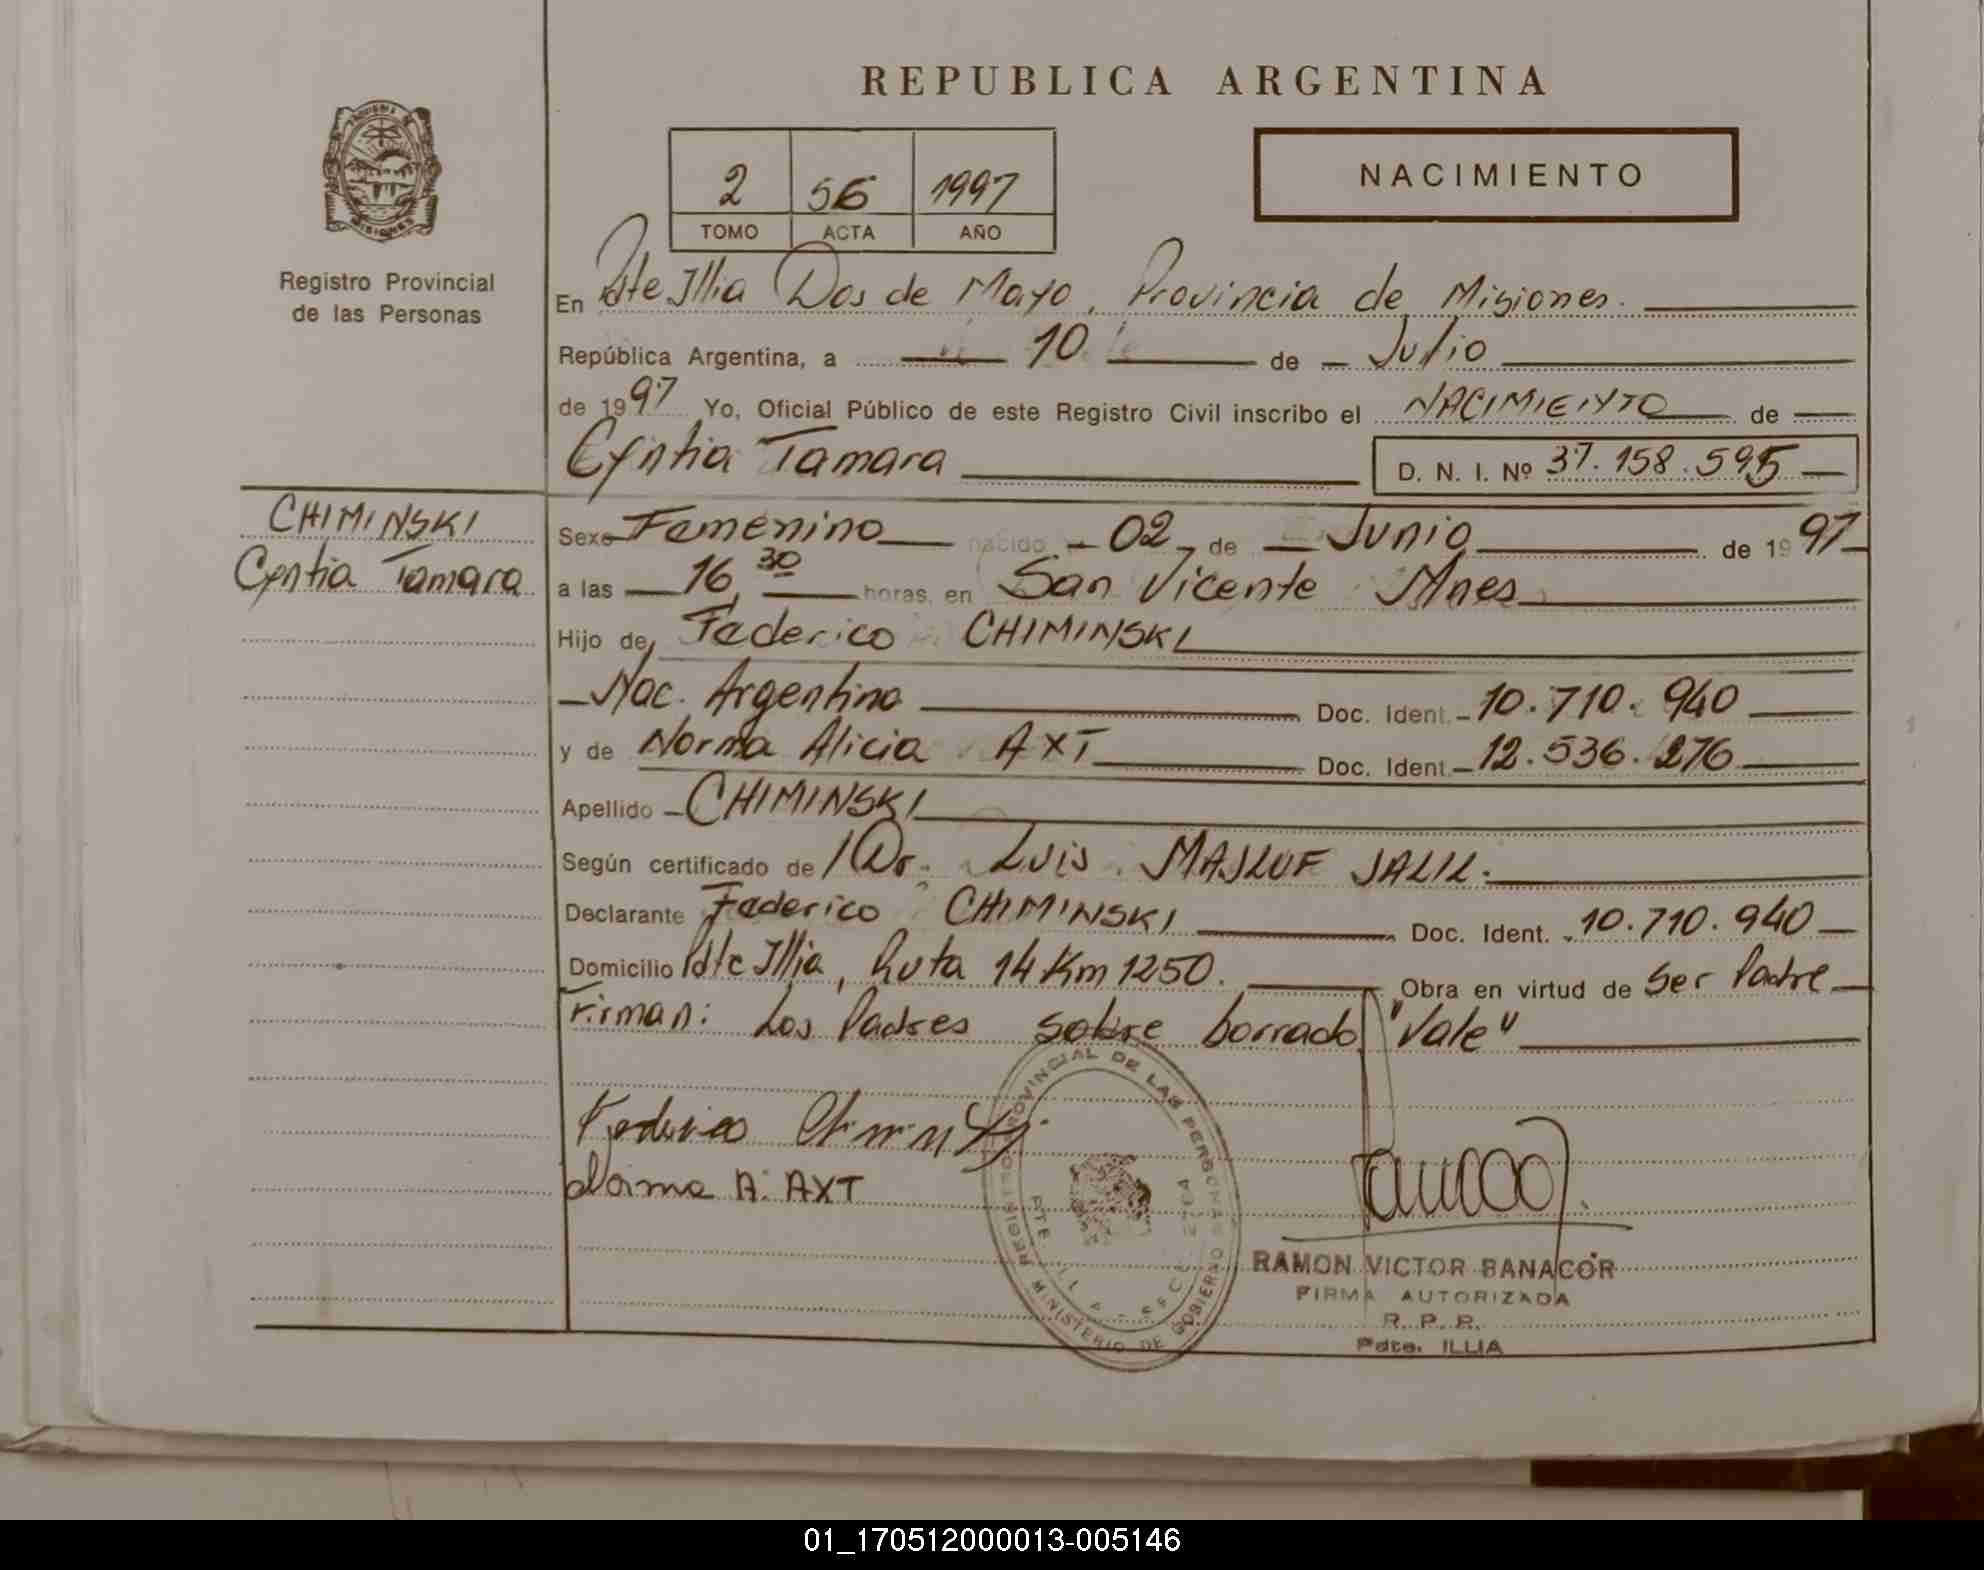 REPUBLICA ARGENTINA
NACIMIENTO
2 56 1997
TOMO ACTA AÑO
MISIONES
Registro Provincial
de las Personas
En Pdte Illia Dos de Mayo, Provincia de Misiones.
República Argentina, a 10 de Julio
de 1997 Yo, Oficial Público de este Registro Civil inscribo el NACIMIENTO de
Cyntia Tamara D. N. I. Nº 37.158.595
CHIMINSKI
Cyntia Tamara
Sexo Femenino nacido 02 de Junio de 1997
a las 16,30 horas, en San Vicente Mnes
Hijo de Federico CHIMINSKI
Nac. Argentino Doc. Ident. 10.710.940
y de Norma Alicia AXT Doc. Ident. 12.536.276
Apellido CHIMINSKI
Según certificado de Dr. Luis MAJLUF JALIL.
Declarante Federico CHIMINSKI Doc. Ident. 10.710.940
Domicilio Pdte Illia, Ruta 14 Km 1250. Obra en virtud de Ser Padre
Firman: Los Padres sobre borrado "Vale"
Federico Chiminski
Norma A. AXT
REGISTRO PROVINCIAL DE LAS PERSONAS
MINISTERIO DE GOBIERNO
RAMON VICTOR BANACOR
FIRMA AUTORIZADA
R. P. P.
Pdte. ILLIA
01_170512000013-005146